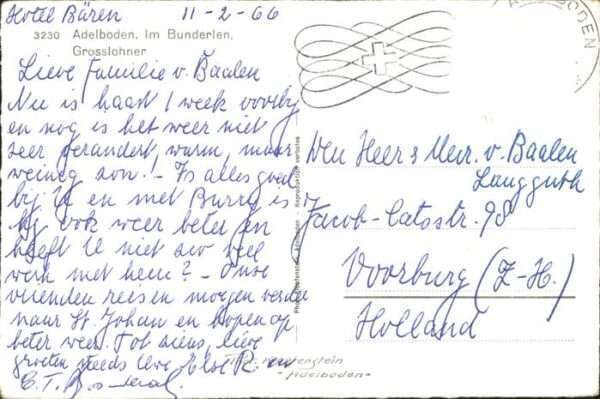 Hotel Bären 11-2-66
3230 Adelboden. Im Bunderlen,
Grosslohner
Lieve Familie v. Baalen
Nu is haast 1 week voorbij
en nog is het weer niet
zeer veranderd, warm, maar
weinig zon! - Is alles goed
bij U en met Burry is
hij ook weer beter en
heeft U niet zoo veel
werk met hem? - Onze
vrienden reisen morgen verder
naar St. Johan en hopen op
beter weer. Tot ziens, lieve
groeten steeds Uwe
Den Heer & Mevr. v. Baalen
Langguth
Jacob-Catsstr. 98
Voorburg (Z-H.)
Holland
Adelboden
BODEN